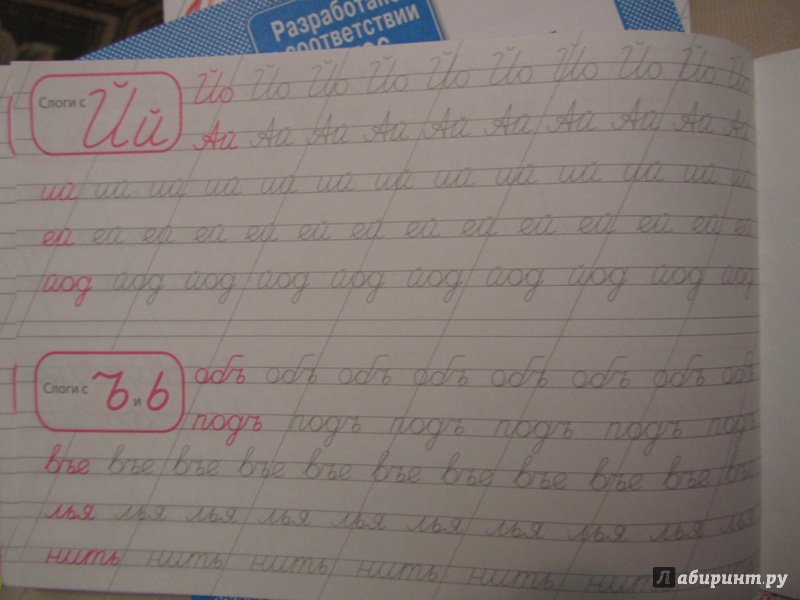 Разработано
соответствии
Слоги с Й й
Йо Йо Йо Йо Йо Йо Йо Йо Йо Йо
Ай Ай Ай Ай Ай Ай Ай Ай Ай Ай
ий ий ий ий ий ий ий ий ий ий ий ий ий
ей ей ей ей ей ей ей ей ей ей ей ей ей ей
йод йод йод йод йод йод йод йод йод йод
Слоги с Ъ и Ь
объ объ объ объ объ объ объ объ
подъ подъ подъ подъ подъ подъ
въе въе въе въе въе въе въе въе въе въе въе
лья лья лья лья лья лья лья лья лья лья
нить нить нить нить нить нить нить
Лабиринт.ру